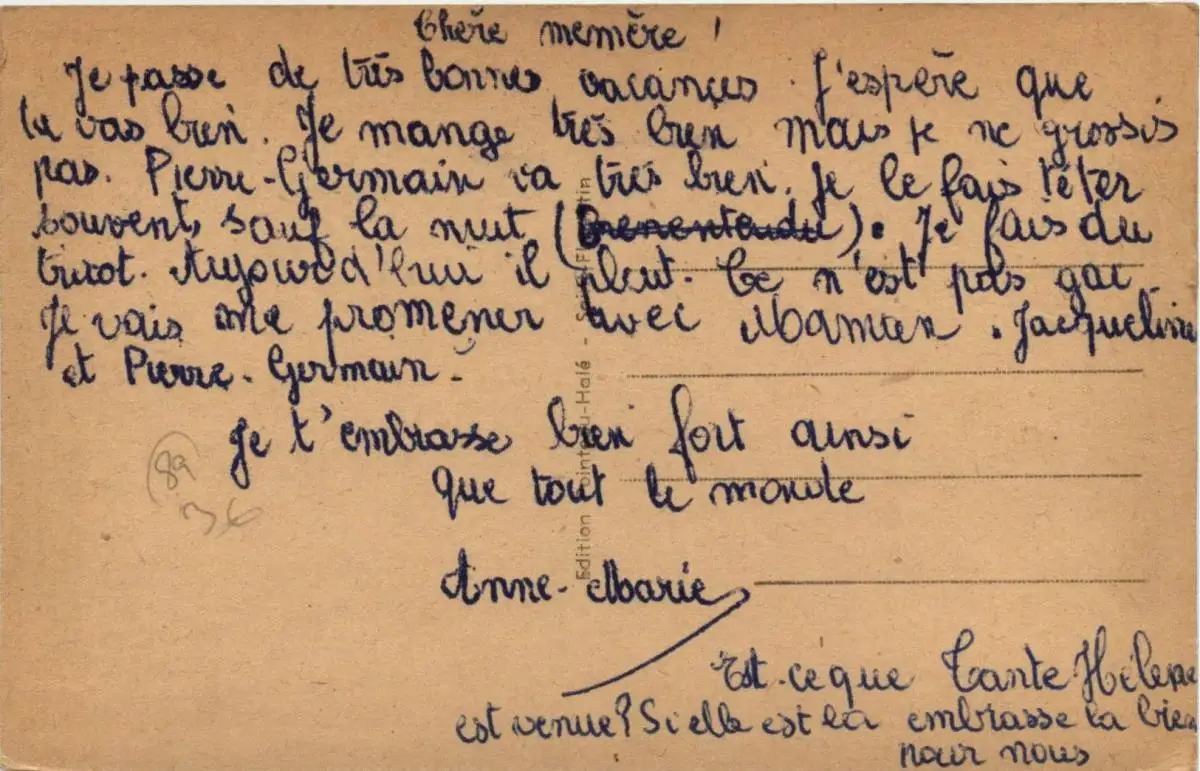 Chère memère !
Je passe de très bonnes vacances. J'espère que
tu vas bien. Je mange très bien mais je ne grossis
pas. Pierre-Germain va très bien. Je le fais têter
souvent, sauf la nuit (). Je fais du
tricot. Aujourd'hui il pleut. Ce n'est pas gai.
Je vais me promener avec Maman. Jacqueline
et Pierre-Germain.
Je t'embrasse bien fort ainsi
que tout le monde
Anne-Marie
Est-ce que Tante Hélène
est venue? Si elle est là embrasse la bien
pour nous
89
36
Edition